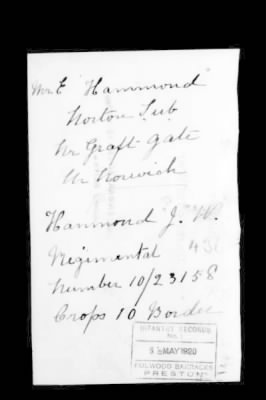 Mr E Hammond
Norton Sub
Nr Graft gate
Nr Norwich
Hammond J. W.
Regimental 43
Number 10/23158
Crops 10 Border
INFANTRY RECORDS
No. 1
MAY 1920
FULWOOD BARRACKS
PRESTON